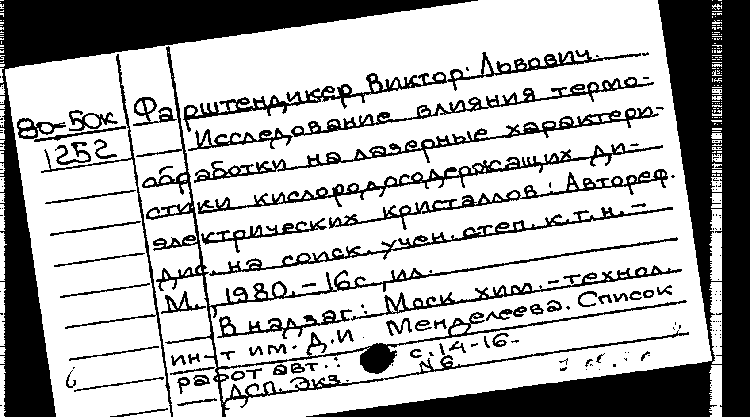 80-50к
1252
Фарштендикер, Виктор Львович.
Исследование влияния термо-
обработки на лазерные характери-
стики кислородосодержащих ди-
электрических кристаллов: Автореф.
дис. на соиск. учен. степ. к.т.н. -
М., 1980. - 16с., ил.
В надзаг.: Моск. хим.-технол.
ин-т им. Д.И. Менделеева. Список
работ авт.: с. 14-16.
ДСП. Экз. N6
6